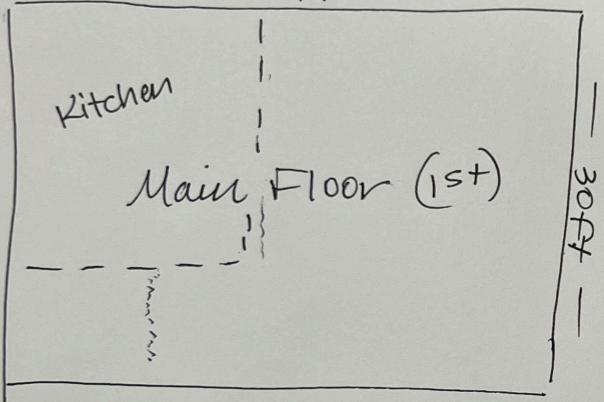 Kitchen
Main Floor (1st)
— 30ft —